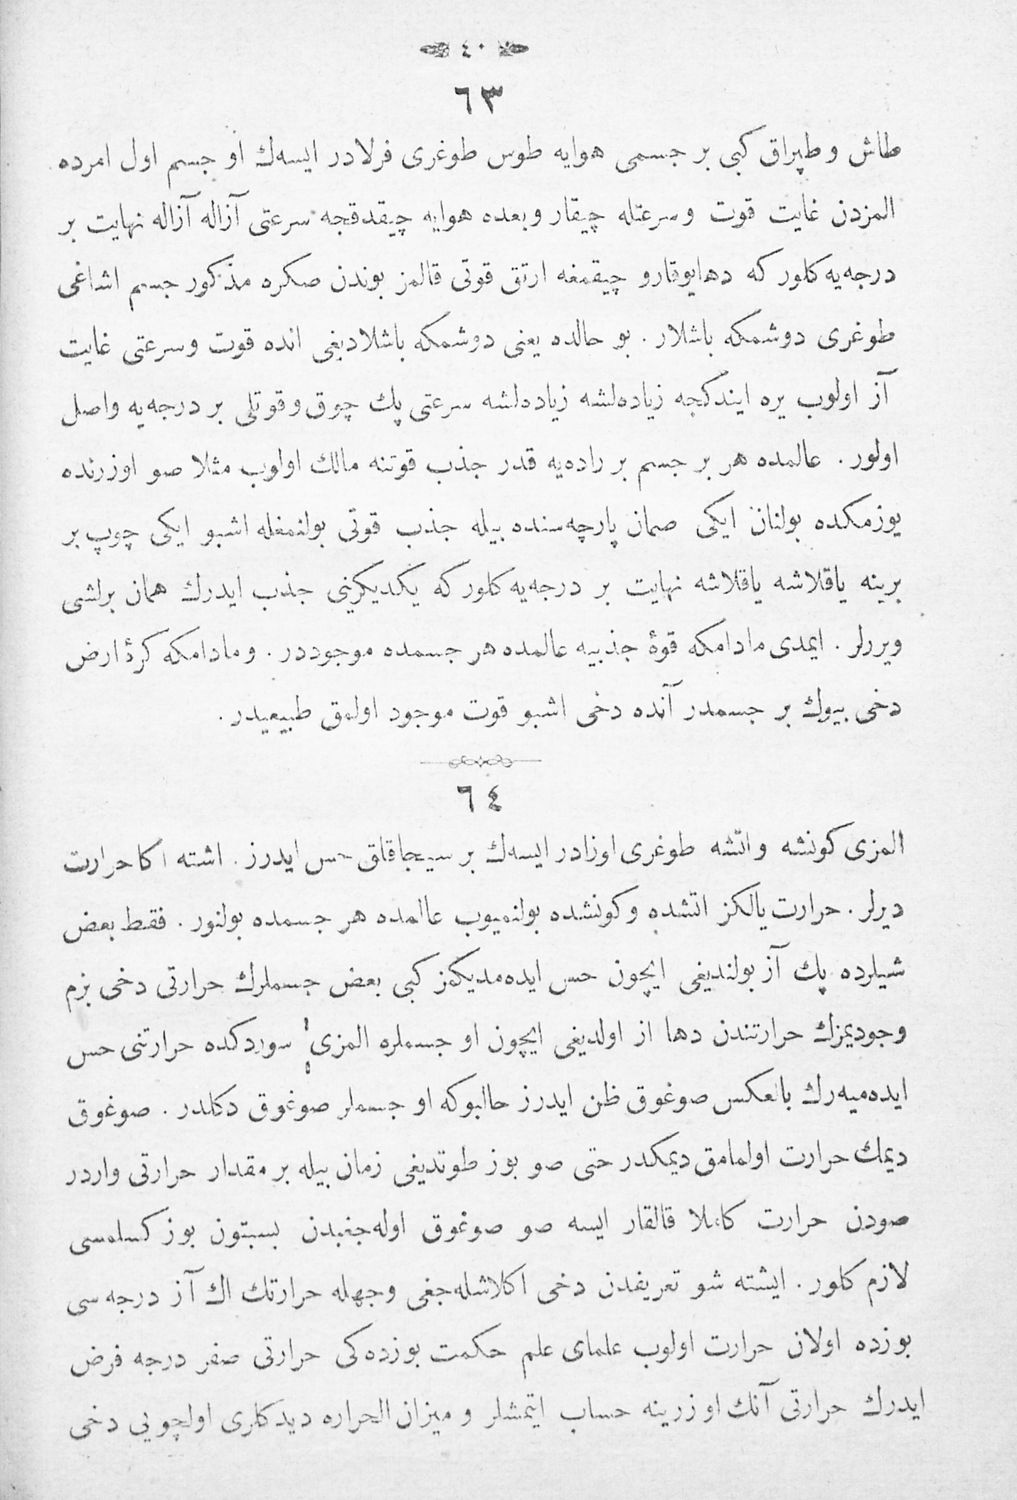 ٤٠
٦٣
طاش و طپراق كبى بر جسمى هوايه طوس طوغرى فرلادر ايسه‌ك او جسم اول امرده
المزدن غايت قوت و سرعتله چيقار و بعده هوايه چيقدقجه سرعتى آزاله آزاله نهايت بر
درجه‌يه كلور كه دها يوقارو چيقمغه ارتق قوتى قالمز بوندن صكره مذكور جسم اشاغى
طوغرى دوشمكه باشلار . بو حالده يعنى دوشمكه باشلاديغى انده قوت و سرعتى غايت
آز اولوب يره ايندكجه زياده‌لشه زياده‌لشه سرعتى پك چوق و قوتلى بر درجه‌يه واصل
اولور . عالمده هر بر جسم بر راده‌يه قدر جذب قوتنه مالك اولوب مثلا صو اوزرنده
يوزمكده بولنان ايكى صمان پارچه‌سنده بيله جذب قوتى بولنمغله اشبو ايكى چوپ بر
برينه ياقلاشه ياقلاشه نهايت بر درجه‌يه كلور كه يكديكرينى جذب ايدرك همان برلشى
ويررلر . ايمدى مادامكه قوۀ جذبيه عالمده هر جسمده موجوددر . و مادامكه كرۀ ارض
دخى بيوك بر جسمدر آنده دخى اشبو قوت موجود اولمق طبيعيدر .
٦٤
المزى كونشه و اتشه طوغرى اوزادر ايسه‌ك بر سيجاقلق حس ايدرز . اشته اكا حرارت
ديرلر . حرارت يالكز اتشده و كونشده بولنميوب عالمده هر جسمده بولنور . فقط بعض
شيلرده پك آز بولنديغى ايچون حس ايده‌مديكمز كبى بعض جسملرك حرارتى دخى بزم
وجوديمزك حرارتندن دها از اولديغى ايچون او جسملره المزى سوردكده حرارتنى حس
ايده‌ميه‌رك بالعكس صوغوق ظن ايدرز حالبوكه او جسملر صوغوق دكلدر . صوغوق
ديمك حرارت اولمامق ديمكدر حتى صو بوز طوتديغى زمان بيله بر مقدار حرارتى واردر
صودن حرارت كاملا قالقار ايسه صو صوغوق اوله‌جغندن بسبتون بوز كسلمسى
لازم كلور . ايشته شو تعريفدن دخى اكلاشله‌جغى وجهله حرارتك اك آز درجه سى
بوزده اولان حرارت اولوب علماى علم حكمت بوزده‌كى حرارتى صفر درجه فرض
ايدرك حرارتى آنك اوزرينه حساب ايتمشلر و ميزان الحراره ديدكلرى اولچويى دخى